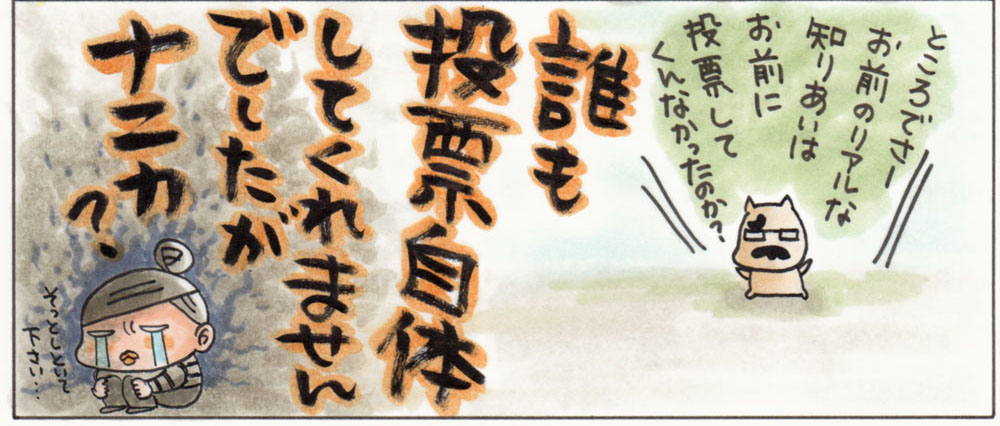 ところでさー
お前のリアルな
知りあいは
お前に
投票して
くんなかったのか?
誰も
投票自体
してくれません
でしたが
ナニカ?
そっとしといて
下さい…